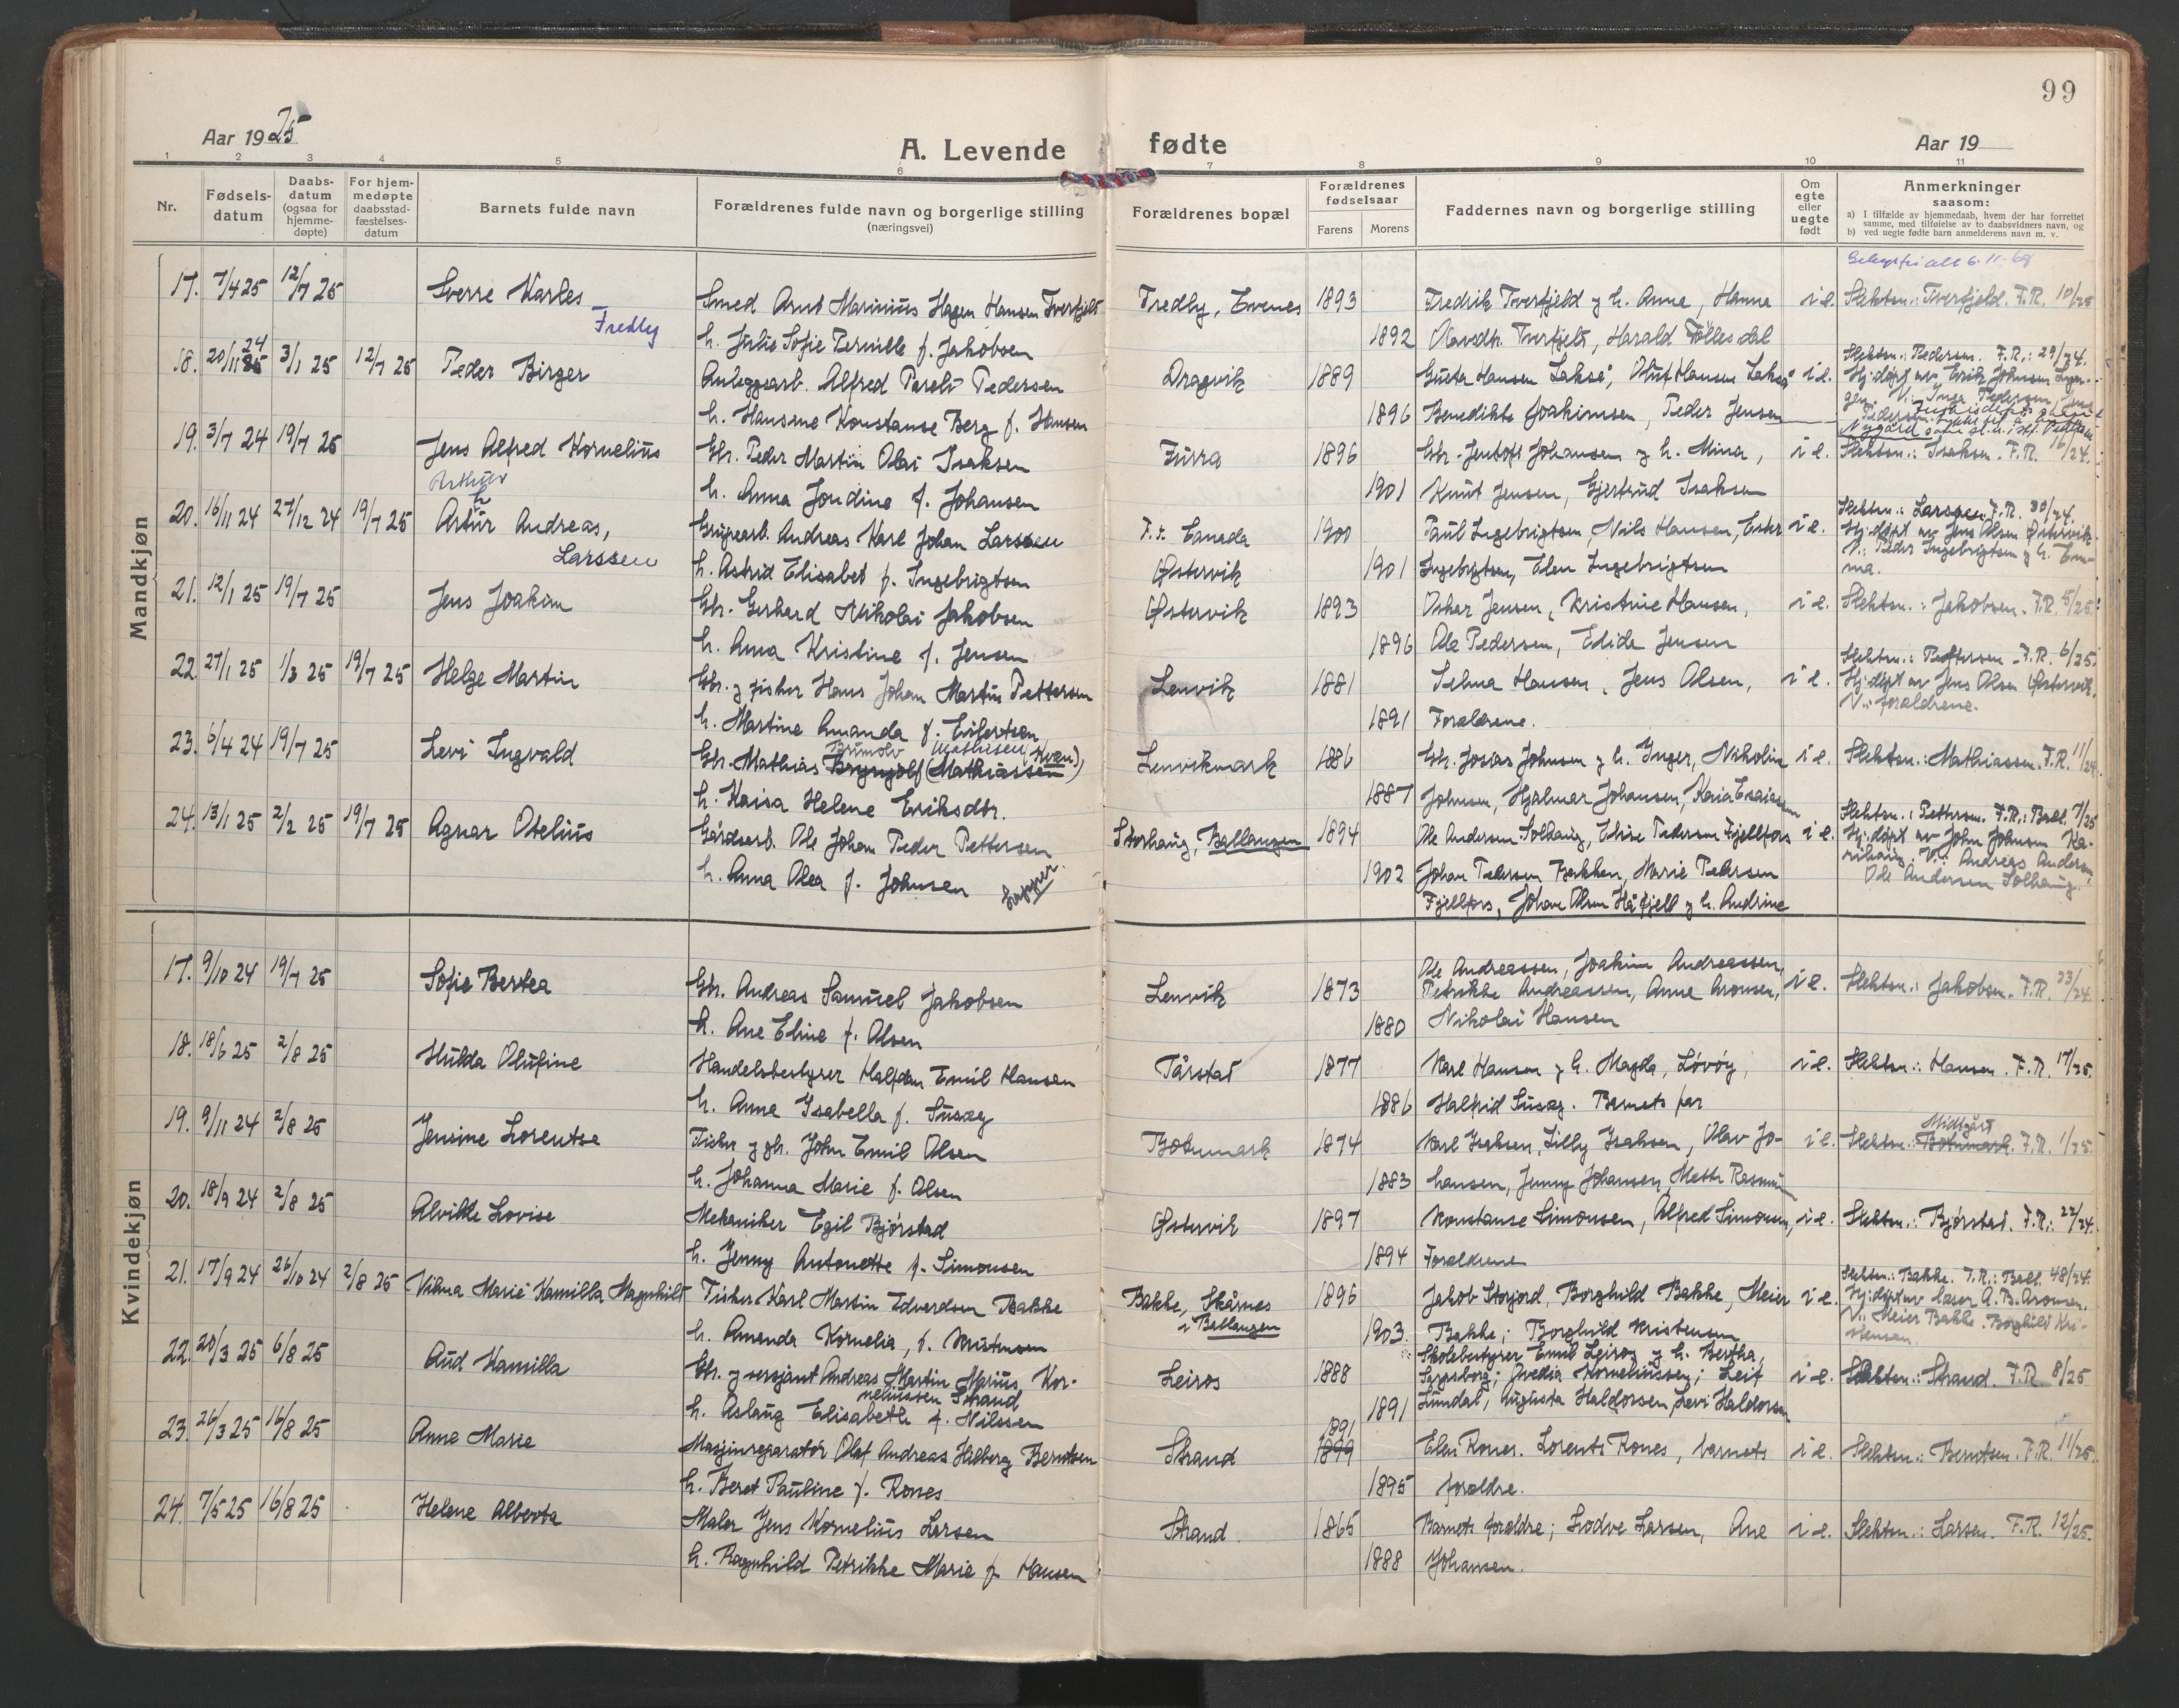 99
Aar 1925
A. Levende fødte
Aar 19
1 2 3 4 5 6 7 8 9 10 11
Nr.
Fødsels-
datum
Daabs-
datum
(ogsaa for
hjemme-
døpte)
For hjem-
medøpte
daabsstad-
fæstelses-
datum
Barnets fulde navn
Forældrenes fulde navn og borgerlige stilling
(næringsvei)
Forældrenes bopæl
Forældrenes
fødselsaar
Farens Morens
Faddernes navn og borgerlige stilling
Om
egte
eller
uegte
født
Anmerkninger
saasom:
a) I tilfælde av hjemmedaab, hvem der har forrettet
samme, med tilføielse av to daabsvidners navn, og
b) ved uegte fødte barn anmelderens navn m. v.
Mandkjøn
17. 7/4 25 12/7 25 Sverre Karles Smed Arnt Marinius Hagen Hansen Tverfjeld Fredby, Evenes 1893 Fredrik Tverfjeld g h. Anne, Hanna i e. Slektsn.: Tverfjeld. F.R. 10/25
Fredby
h. Julie Sofie Pernille f. Jakobsen 1892 Olavsdtr. Tverfjeld, Harald Føllesdal
18. 20/11 24 3/1 25 12/7 25 Peder Birger Anleggsarb. Alfred Parelo Pedersen Dragvik 1889 Gusta Hansen Lakså, Oluf Hansen Lakså i e. Slektsn.: Pedersen. F.R.: 29/24.
Hj.døpt av Erik Johnsen
h. Hansine Konstanse Berg f. Hansen 1896 Benedikte Joakimsen, Peder Jensen
19. 3/7 24 19/7 25 Jens Alfred Kornelius Gbr. Peder Martin Olai Isaksen Furra 1896 Gbr. Jentoft Johansen g h. Mina, i e. Slektsn.: Isaksen. F.R. 16/24.
h. Anna Jondine f. Johansen 1901 Knut Jensen, Gjertrud Isaksen
Arthur
20. 16/11 24 27/12 24 19/7 25 Artur Andreas, Grugearb. Andreas Karl Johan Larssen F.t. Canada 1900 Paul Ingebrigtsen, Nils Hansen, Ester i e. Slektsn.: Larssen. F.R. 30/24.
Larssen
h. Astrid Elisabet f. Ingebrigtsen Østervik 1901 Ingebrigtsen, Elen Ingebrigtsen
Hj.døpt av Jens Olsen Østervik.
V.: Peder Ingebrigtsen g h. Em-
ma.
21. 12/1 25 19/7 25 Jens Joakim Gbr. Gerhard Nikolai Jakobsen Østervik 1893 Oskar Jensen, Kristine Hansen, i e. Slektsn.: Jakobsen. F.R. 5/25.
h. Anna Kristine f. Jensen 1896 Ole Pedersen, Edide Jensen
22. 27/1 25 1/3 25 19/7 25 Helge Martin Gbr. g fisker Hans Johan Martin Pettersen Lenvik 1881 Selma Hansen, Jens Olsen, i e. Slektsn.: Pettersen. F.R. 6/25.
Hj.døpt av Jens Olsen Østervik.
V.: foreldrene.
h. Martine Amanda f. Eilertsen 1891 Foreldrene.
23. 6/4 24 19/7 25 Levi Ingvald Gbr. Mathias Brynjolf (Mathiassen) Lenvikmark 1886 Gbr. Josias Johnsen g h. Inger, Nikoline i e. Slektsn.: Mathiassen. F.R. 11/24.
Brunolv Mathisen (Kvæn)
h. Kaisa Helene Eriksdtr. 1887 Johnsen, Hjalmar Johansen, Karia Esaiassen
24. 13/1 25 2/2 25 19/7 25 Agnar Otelius Gårdsarb. Ole Johan Peder Pettersen Storhaug, Ballangen 1894 Ole Andersen Solhaug, Elise Pedersen Fjellfors i e. Slektsn.: Pettersen. F.R.: Ball. 7/25
Hj.døpt av John Johnsen Ka-
rihaug. V.: Andreas Andersen,
Ole Andersen Solhaug.
h. Anna Olea f. Johnsen lapper 1902 Johan Pedersen Bakken, Marie Pedersen
Fjellfors, Johan Olsen Håfjell g h. Andrine
Kvindekjøn
17. 9/10 24 19/7 25 Sofie Bertea Gbr. Andreas Samuel Jakobsen Lenvik 1873 Ole Andreassen, Joakim Andreassen, i e. Slektsn.: Jakobsen. F.R. 23/24.
Petrikke Andreassen, Anne Aronsen,
h. Ane Eline f. Olsen 1880 Nikolai Hansen
18. 18/6 25 2/8 25 Hulda Olufine Handelsbestyrer Halfdan Emil Hansen Tårstad 1877 Karl Hansen g h. Magda, Løvøy, i e. Slektsn.: Hansen. F.R. 17/25.
h. Anna Isabella f. Susæg 1886 Halfrid Susæg. Barnets far
19. 9/11 24 2/8 25 Jensine Lorentse Fisker g gbr. John Emil Olsen Botnmark 1874 Karl Isaksen, Lilly Isaksen, Olav Jo- i e. Slektsn.: Botnmark. F.R. 1/25.
Midtgård
h. Johanna Marie f. Olsen 1883 hansen, Jenny Johansen, Mette Rasmussen
20. 18/9 24 2/8 25 Alvilde Lovise Mekaniker Egil Bjørstad Østervik 1897 Konstanse Simonsen, Alfred Simonsen, i e. Slektsn.: Bjørstad. F.R.: 22/24.
h. Jenny Antonette f. Simonsen 1894 Foreldrene
21. 17/9 24 26/10 24 2/8 25 Vilma Marie Kamilla Magnhild Fisker Karl Martin Edvardsen Bakke Bakke, Skårnes 1896 Jakob Storjord, Borghild Bakke, Meier i e. Slektsn.: Bakke. F.R.: Ball. 48/24.
i Ballangen
Hj.døpt av lærer A.B. Aronsen.
V.: Meier Bakke. Borghild Kri-
stensen.
h. Amanda Kornelia, f. Kristensen 1903. Bakke; Borghild Kristensen
22. 20/3 25 6/8 25 Aud Kamilla Gbr. g sersjant Andreas Martin Marius Kor- Leiros 1888 Skolebestyrer Emil Leiros g h. Bertha, i e. Slektsn.: Strand. F.R. 8/25
neliussen Strand
Sarpsborg; Arvedia Korneliussen; Leif
h. Aslaug Elisabeth f. Nilssen 1891 Lundal, Augusta Haldorsen, Levi Haldorsen
23. 26/3 25 16/8 25 Anne Marie Maskinreparatør Olaf Andreas Hilberg Berntsen Strand 1891 1899 Elen Rones. Lorents Rones, barnets i e. Slektsn.: Berntsen. F.R. 11/25.
h. Beret Pauline f. Rones 1895 foreldre.
24. 7/5 25 16/8 25 Helene Alberta Maler Jens Kornelius Larsen Strand. 1865 Barnets foreldre; Lodve Larsen, Ane i e. Slektsn.: Larsen. F.R. 12/25.
h. Ragnhild Petrikke Marie f. Hansen 1888 Johansen.